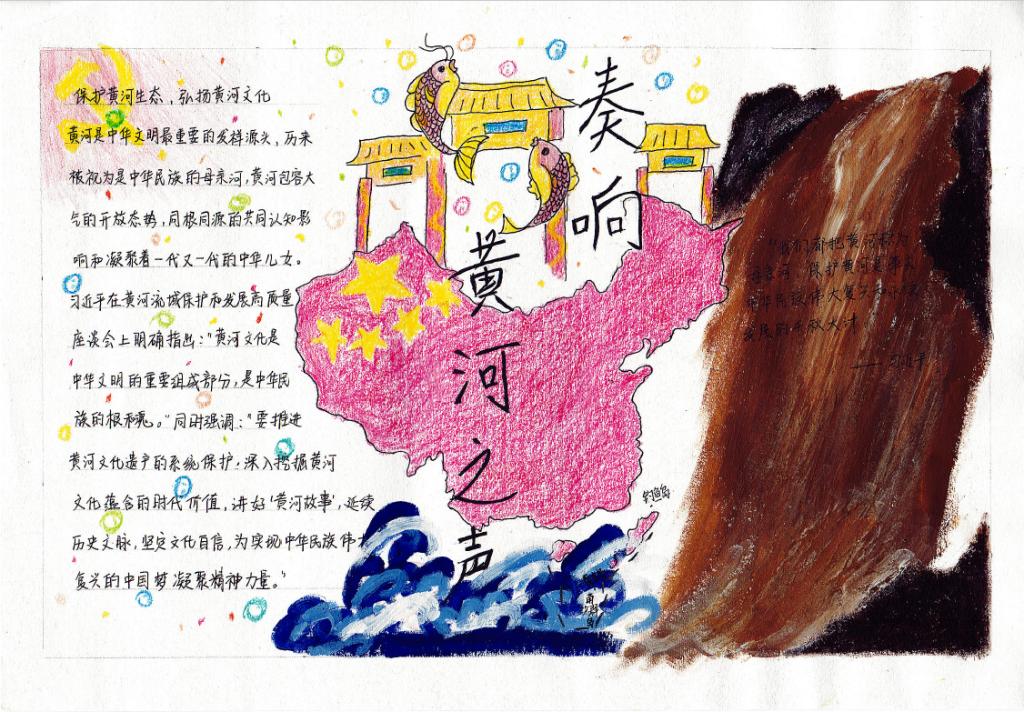 保护黄河生态，弘扬黄河文化
黄河是中华文明最重要的发样源头，历来
被视为是中华民族的母亲河，黄河包容大
气的开放态势，同根同源的共同认知影
响和凝聚着一代又一代的中华儿女。
习近平在黄河流域保护和发展高质量
座谈会上明确指出："黄河文化是
中华文明的重要组成部分，是中华民
族的根和魂。"同时强调："要推进
黄河文化遗产的系统保护，深入挖掘黄河
文化蕴含的时代价值，讲好'黄河故事'，延续
历史文脉，坚定文化自信，为实现中华民族伟大
复兴的中国梦凝聚精神力量。"
奏响
黄河之声
钓鱼岛
"我们都把黄河称为
母亲河，保护黄河是事关
中华民族伟大复兴和
千秋大计
——习近平